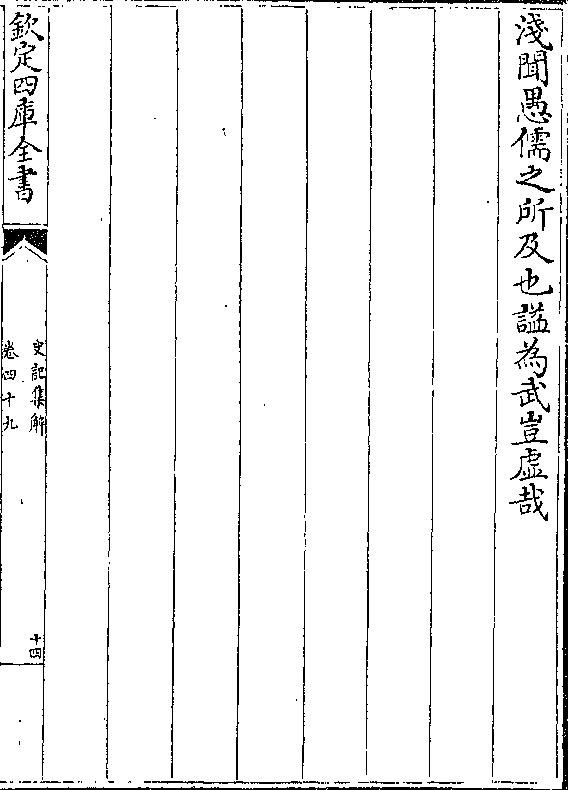 淺聞愚儒之所及也謚為武豈虛哉
欽定四庫全書
史記集解
卷四十九
十四